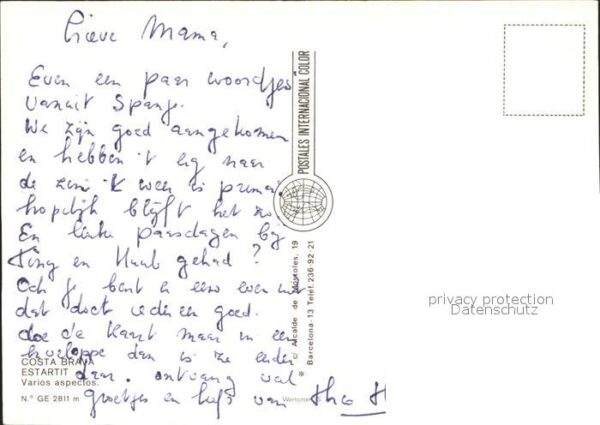 Lieve Mama,
Even een paar woordjes
vanuit Spanje.
We zijn goed aangekomen
en hebben 't erg naar
de zin. 't weer is prima
hopelijk blijft het zo.
En leuke paasdagen bij
en gehad?
Och je bent er eens even uit
dat doet iedereen goed.
doe de kaart maar in een
enveloppe dan is ze eerder
daar. ontvang wel
groetjes en liefs van Theo H
COSTA BRAVA
ESTARTIT
Varios aspectos.
N.º GE 2811 m
POSTALES INTERNACIONAL COLOR
c/ Alcalde de Móstoles, 19
Barcelona-13 Telef. 236-92-21
privacy protection
Datenschutz